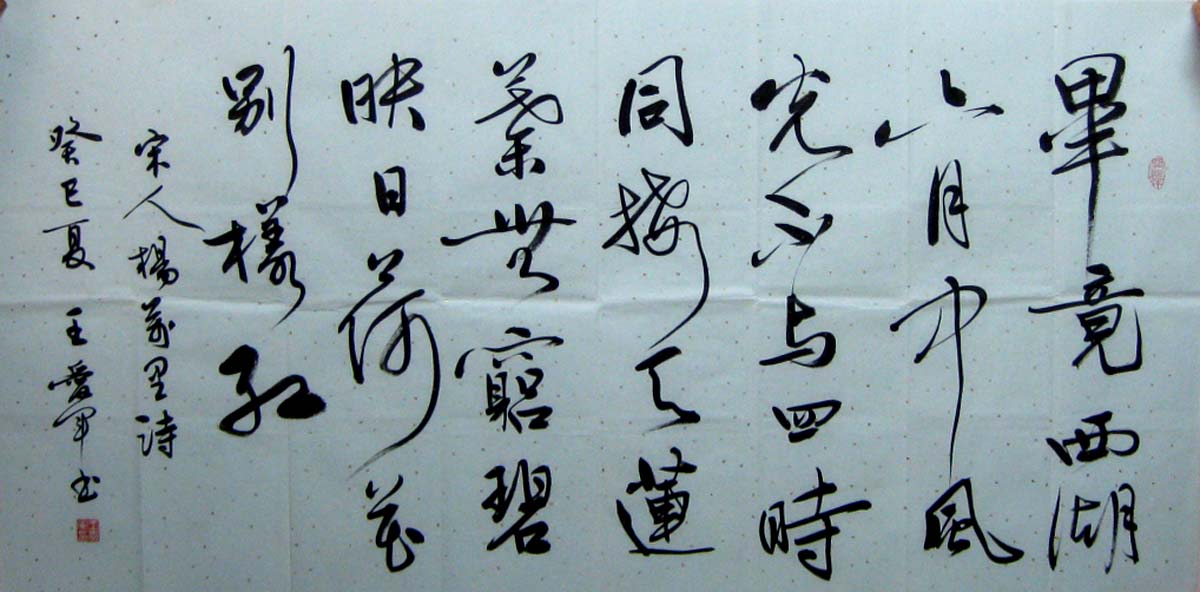 畢竟西湖
六月中風
光不与四時
同接天蓮
葉無竆碧
映日荷花
別樣紅
宋人楊萬里詩
癸巳夏 王愛軍书